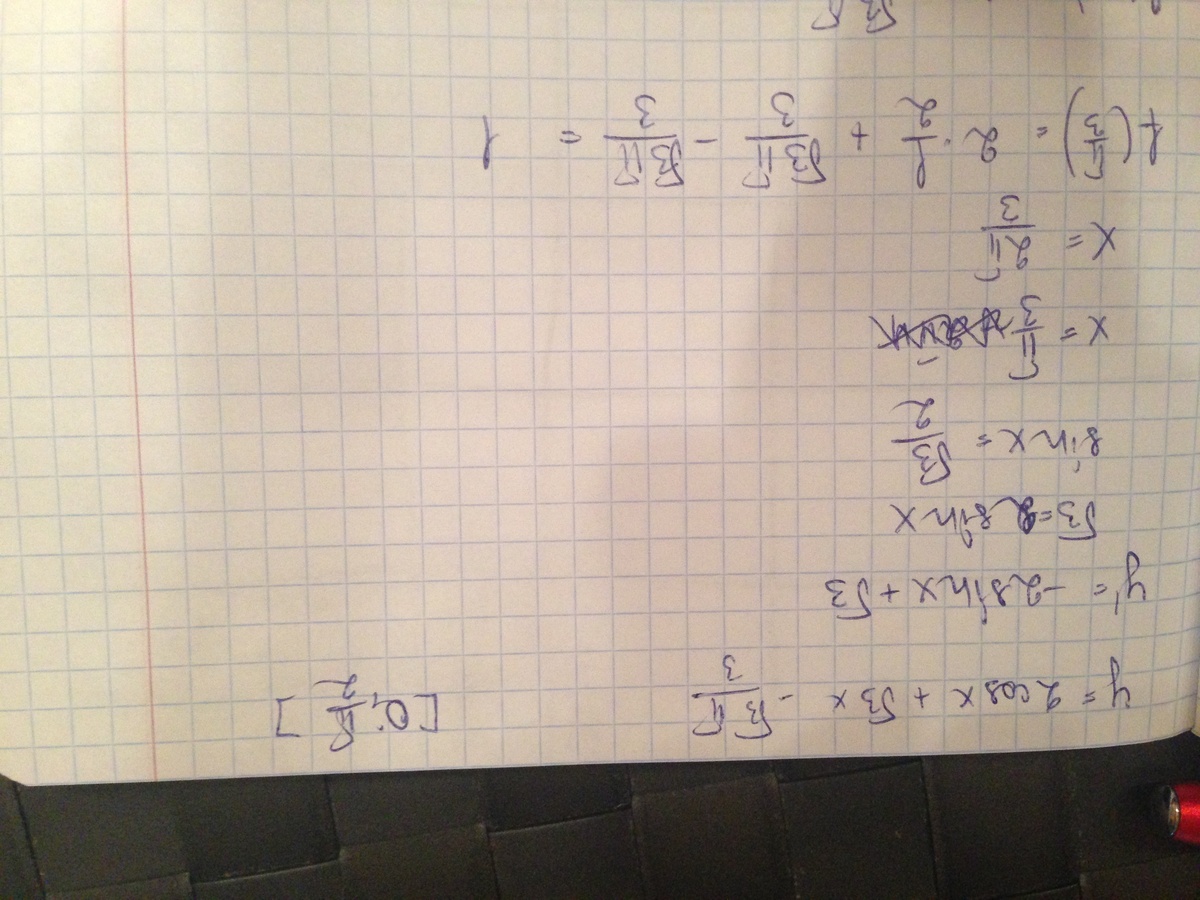 y = 2cosx + √3x - √3π/3 [0; π/2]
y' = -2sinx + √3
√3 = 2sinx
sinx = √3/2
x = π/3
x = 2π/3
f(π/3) = 2 · 1/2 + √3π/3 - √3π/3 = 1
√3π